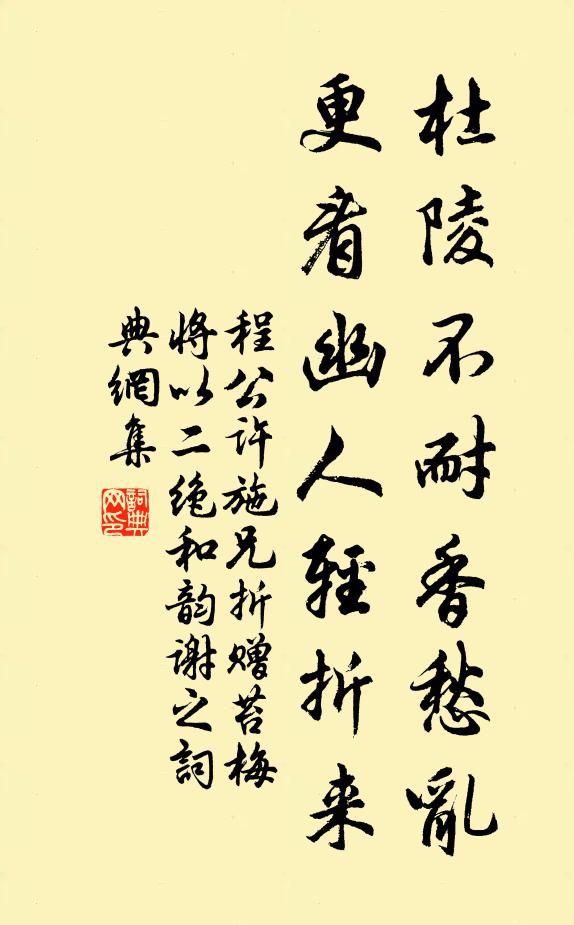 杜陵不耐香愁亂
更看幽人輕折来
程公许施兄折赠苔梅
将以二绝和韵谢之詞
典網集
詞典网印